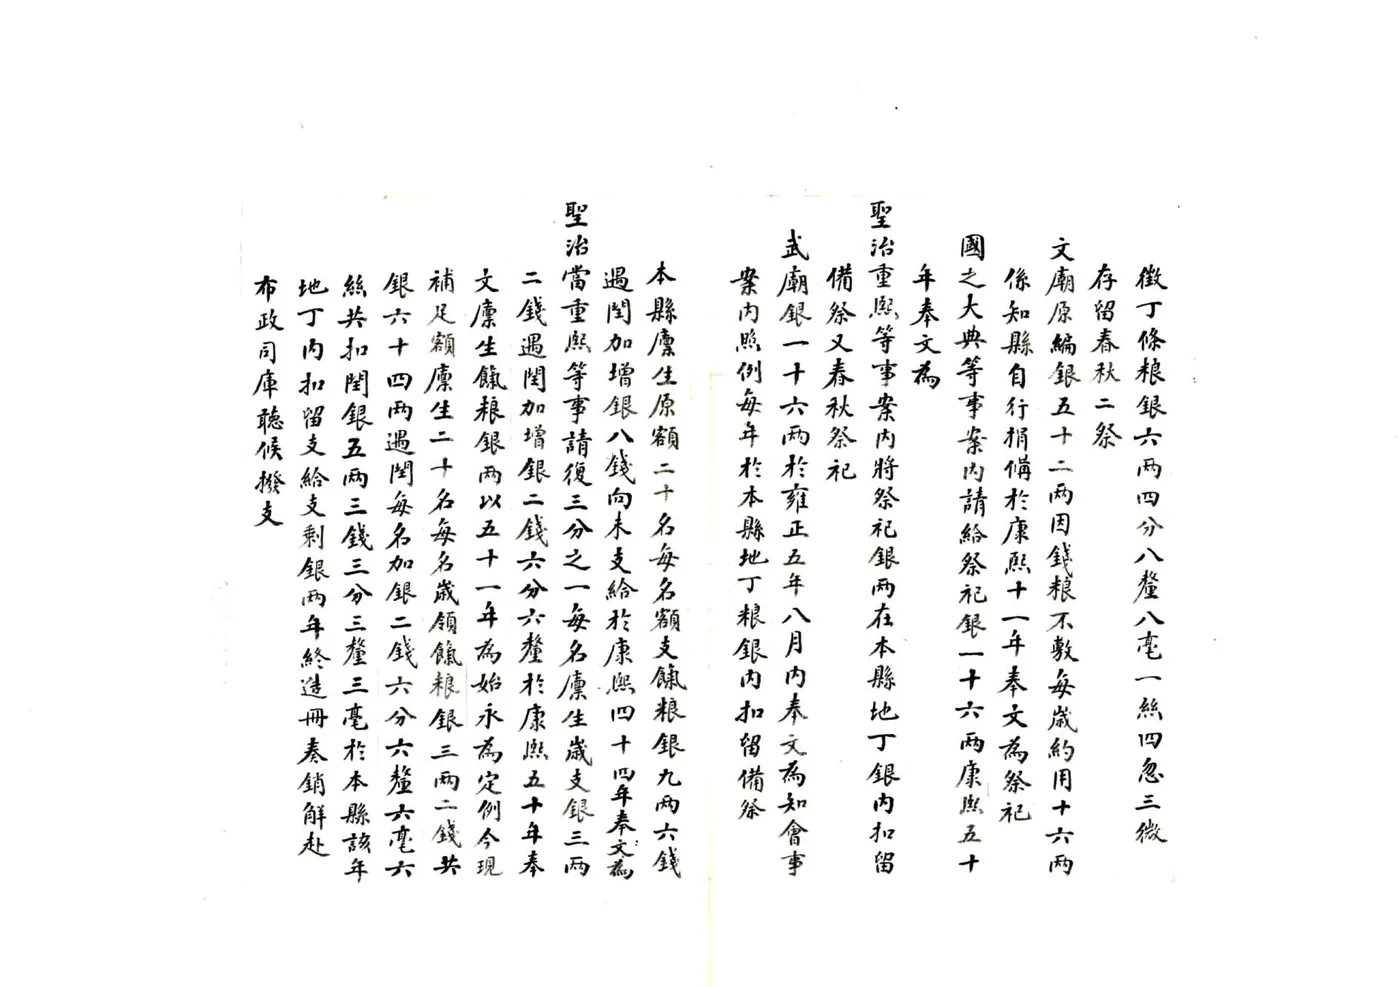 徵丁條粮銀六两四分八釐八毫一絲四忽三微
存留春秋二祭
文廟原編銀五十二两因錢粮不敷每歲約用十六两
係知縣自行捐備於康熙十一年奉文為祭祀
國之大典等事案內請給祭祀銀一十六两康熙五十
年奉文為
聖治重熙等事案內將祭祀銀两在本縣地丁銀內扣留
備祭又春秋祭祀
武廟銀一十六两於雍正五年八月內奉文為知會事
案內照例每年於本縣地丁粮銀內扣留備祭
本縣廪生原額二十名每名額支餼粮銀九两六錢
遇閏加增銀八錢向未支給於康熙四十四年奉文為
聖治當重熙等事請復三分之一每名廪生歲支銀三两
二錢遇閏加增銀二錢六分六釐於康熙五十年奉
文廪生餼粮銀两以五十一年為始永為定例今現
補足額廪生二十名每名歲領餼粮銀三两二錢共
銀六十四两遇閏每名加銀二錢六分六釐六毫六
絲共扣閏銀五两三錢三分三釐三毫於本縣該年
地丁內扣留支給支剩銀两年終造冊奏銷解赴
布政司庫聽候撥支